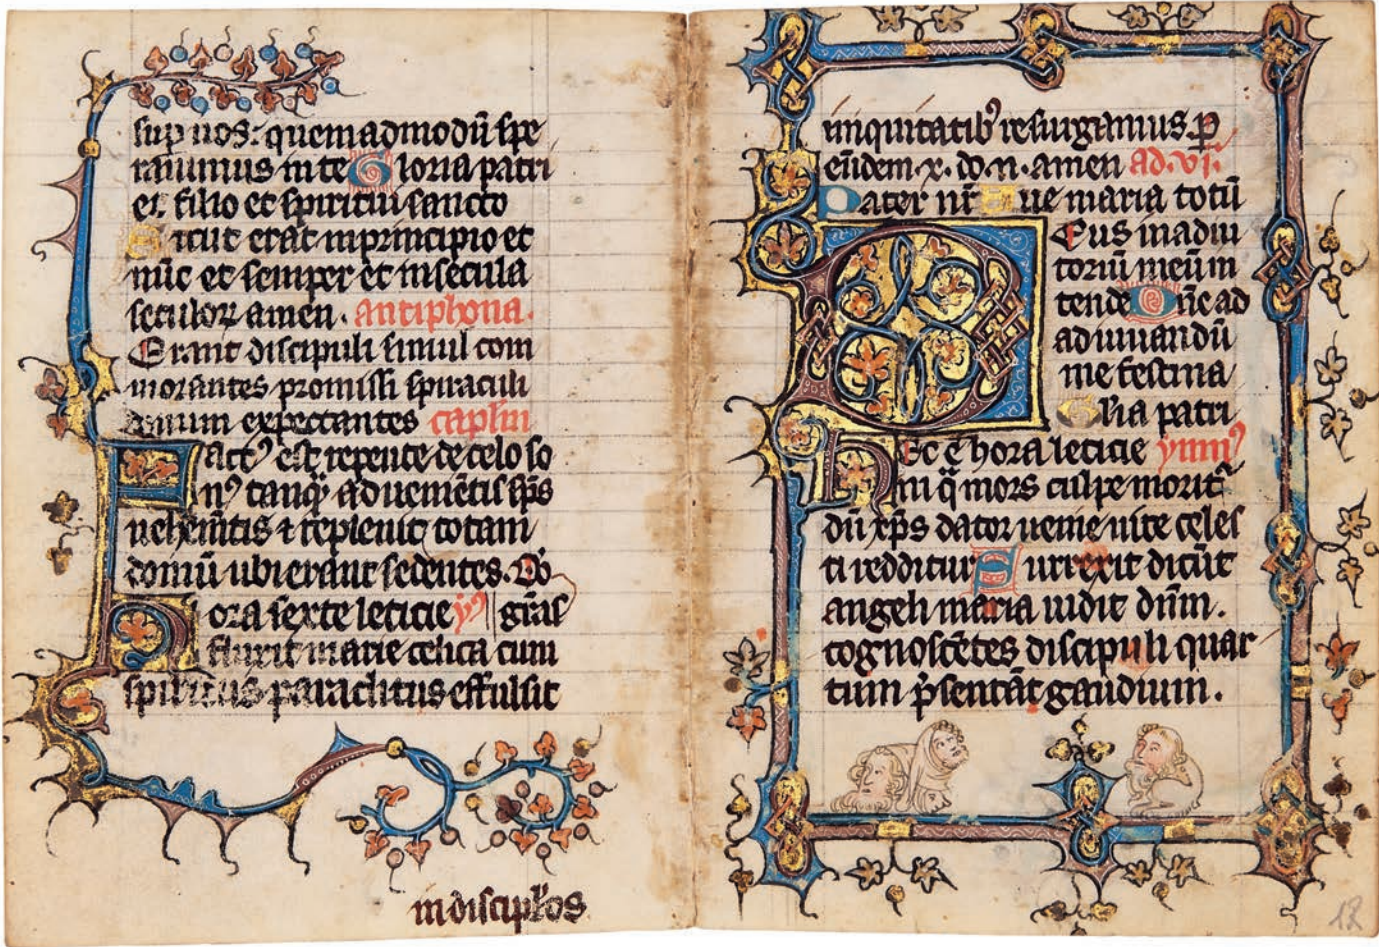 sup nos: quemadmodū spe
rauimus in te Gloria patri
et filio et spiritui sancto
Sicut erat in principio et
nūc et semper et in secula
seculoꝝ amen. antiphona.
Erant discipuli simul com
morantes promissi spiraculi
donum expectantes capl̄m
Factꝰ est repente de celo so
nꝰ tanq̄ aduemētis sp̄s
uehemētis ⁊ repleuit totam
domū ubi erant sedentes. Do
Hora sexte leticie ẏꝰ gr̄as
flurit marie celica cum
spiritus paraclitus effulsit
in discipl̄os
iniquitatibꝰ resurgamus. ꝑ
eūdem .x. do. n. amen ad .vi.
Pater nr̄ Aue maria totū
Deus in adiu
toriū meum in
tende Dn̄e ad
adiuuandū
me festina
Gl̄ia patri
Hec ē hora leticie ymnꝰ
In q̄ mors culpe morit᷑
dū xp̄s dator uenie uite celes
ti redditur Surrexit dicūt
angeli maria uidit dn̄m.
cognoscētes discipuli quar
tum p̄sentāt gaudium.
12